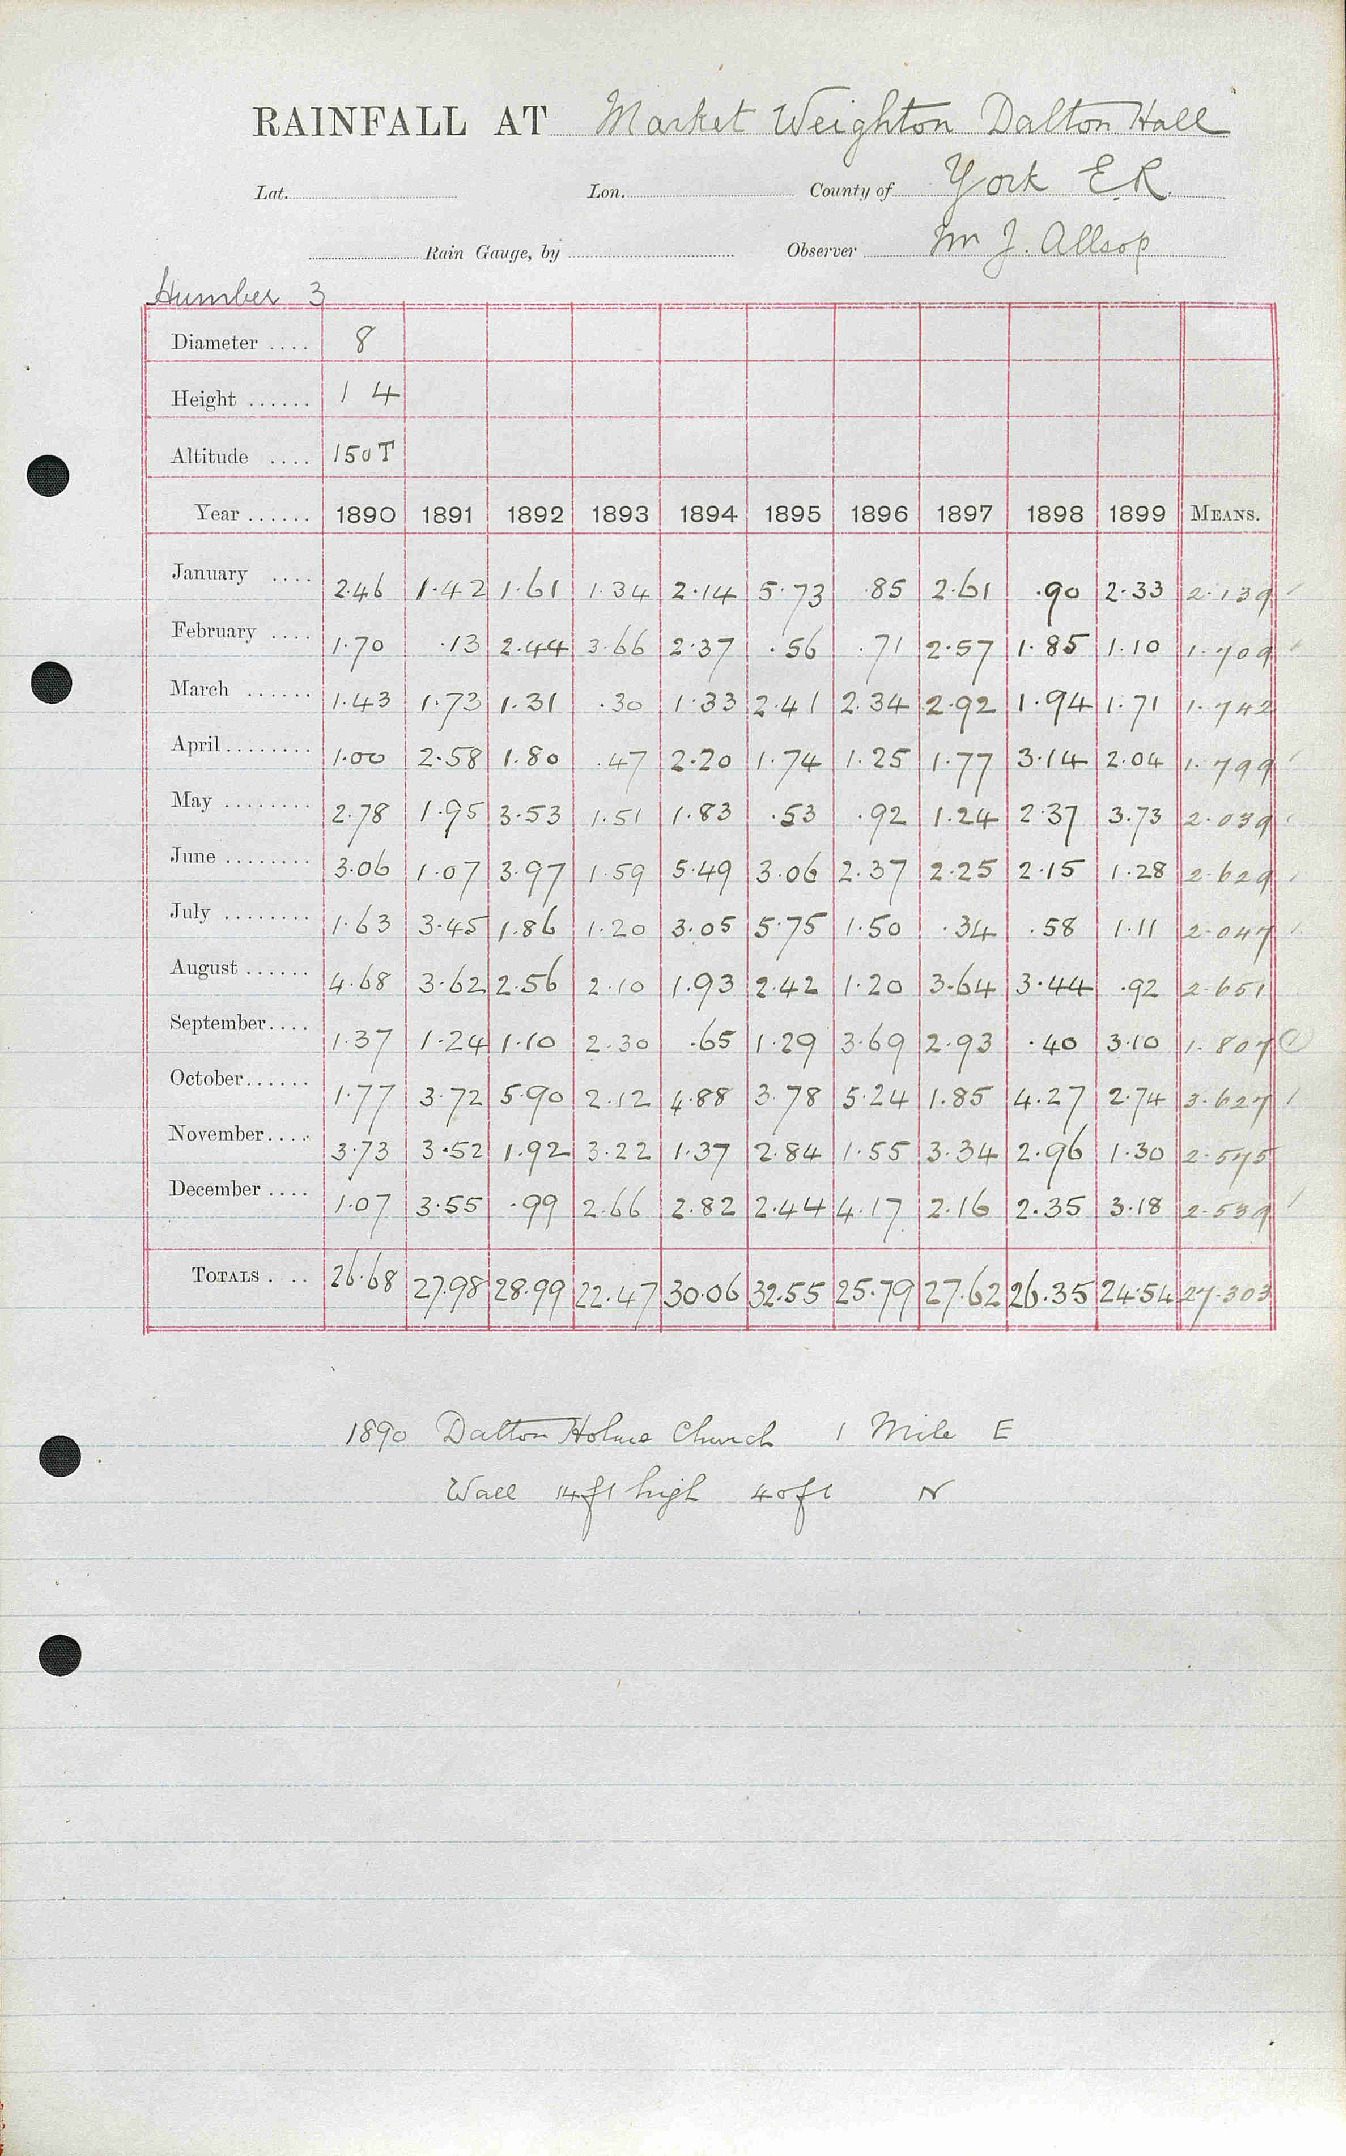 RAINFALL AT Market Weighton Dalton Hall
Lat. Lon. County of York E.R.
Rain Gauge, by Observer Mr J. Allsop
Humber 3
Diameter .... 8
Height ...... 1 4
Altitude .... 150T
Year ...... 1890 1891 1892 1893 1894 1895 1896 1897 1898 1899 MEANS.
January .... 2.46 1.42 1.61 1.34 2.14 5.73 .85 2.61 .90 2.33 2.139
February .... 1.70 .13 2.44 3.66 2.37 .56 .71 2.57 1.85 1.10 1.709
March ...... 1.43 1.73 1.31 .30 1.33 2.41 2.34 2.92 1.94 1.71 1.742
April ........ 1.00 2.58 1.80 .47 2.20 1.74 1.25 1.77 3.14 2.04 1.799
May ........ 2.78 1.95 3.53 1.51 1.83 .53 .92 1.24 2.37 3.73 2.039
June ........ 3.06 1.07 3.97 1.59 5.49 3.06 2.37 2.25 2.15 1.28 2.629
July ........ 1.63 3.45 1.86 1.20 3.05 5.75 1.50 .34 .58 1.11 2.047
August ...... 4.68 3.62 2.56 2.10 1.93 2.42 1.20 3.64 3.44 .92 2.651
September .... 1.37 1.24 1.10 2.30 .65 1.29 3.69 2.93 .40 3.10 1.807
October ...... 1.77 3.72 5.90 2.12 4.88 3.78 5.24 1.85 4.27 2.74 3.627
November .... 3.73 3.52 1.92 3.22 1.37 2.84 1.55 3.34 2.96 1.30 2.575
December .... 1.07 3.55 .99 2.66 2.82 2.44 4.17 2.16 2.35 3.18 2.539
TOTALS . .. 26.68 27.98 28.99 22.47 30.06 32.55 25.79 27.62 26.35 24.54 27.303
1890 Dalton Holme Church 1 Mile E
Wall 14ft high 40ft N